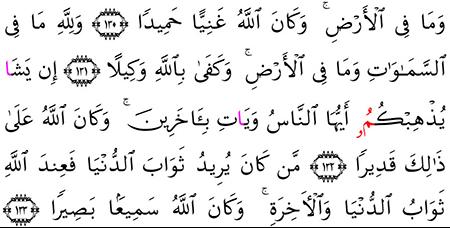 وَمَا فِى ٱلْأَرْضِ ۚ وَكَانَ ٱللَّهُ غَنِيًّا حَمِيدًا ﴿١٣٠﴾ وَلِلَّهِ مَا فِى
ٱلسَّمَـٰوَٰتِ وَمَا فِى ٱلْأَرْضِ ۚ وَكَفَىٰ بِٱللَّهِ وَكِيلًا ﴿١٣١﴾ إِن يَشَا
يُذْهِبْكُمُۥ أَيُّهَا ٱلنَّاسُ وَيَاتِ بِـَٔاخَرِينَ ۚ وَكَانَ ٱللَّهُ عَلَىٰ
ذَٰلِكَ قَدِيرًا ﴿١٣٢﴾ مَّن كَانَ يُرِيدُ ثَوَابَ ٱلدُّنْيَا فَعِندَ ٱللَّهِ
ثَوَابُ ٱلدُّنْيَا وَٱلْـَٔاخِرَةِ ۚ وَكَانَ ٱللَّهُ سَمِيعًۢا بَصِيرًا ﴿١٣٣﴾